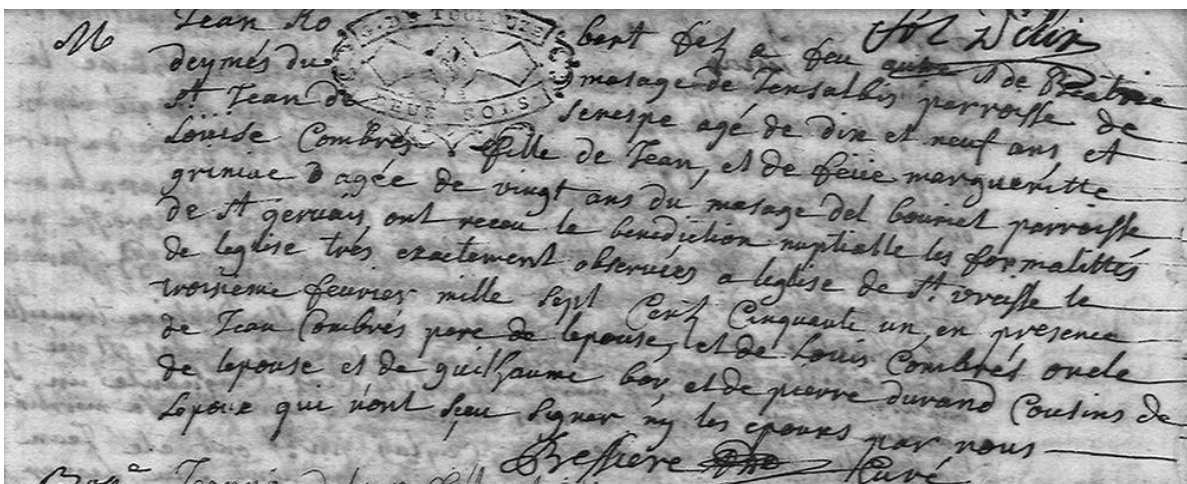 M Jean Ro bert fils a feu
deymés du masage de Tensalbis parroisse de
St Jean de Senespe agé de dix et neuf ans, et
Loüise Combres fille de Jean, et de feüe margueritte
griniac agée de vingt ans du masage del bouriet parroisse
de St gervais, ont receu la benediction nuptialle les formalittés
de leglise trés exactement observées a leglise de St. le
troisieme fevrier mille sept cent Cinquante un, en presence
de Jean Combrés pere de lepouse, et de Louis Combrés oncle
de lepouse et de guilhaume boy, et de pierre durand Cousins de
lepoux qui n'ont sçeu signer ny les epoux par nous
Bessiere Curé
G. DE TOULOUZE
DEUX SOLS